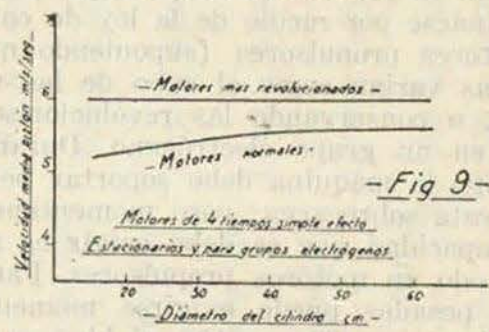 Velocidad media pistón mt/seg.
6
— Motores mas revolucionados —
5
— Motores normales.
— Fig 9 —
4
Motores de 4 tiempos simple efecto
Estacionarios y para grupos electrógenos
20 30 40 50 60
— Diámetro del cilindro cm. —